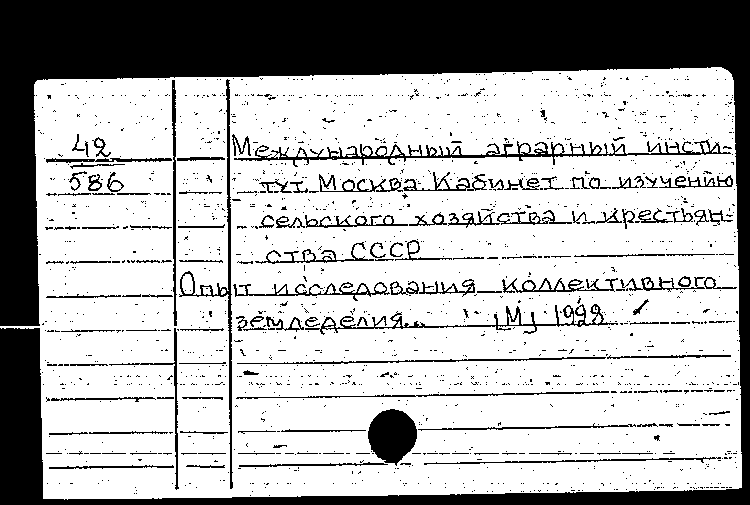 42
586
Международный аграрный инсти-
тут. Москва. Кабинет по изучению
сельского хозяйства и крестьян-
ства СССР
Опыт исследования коллективного
земледелия... [М] 1928